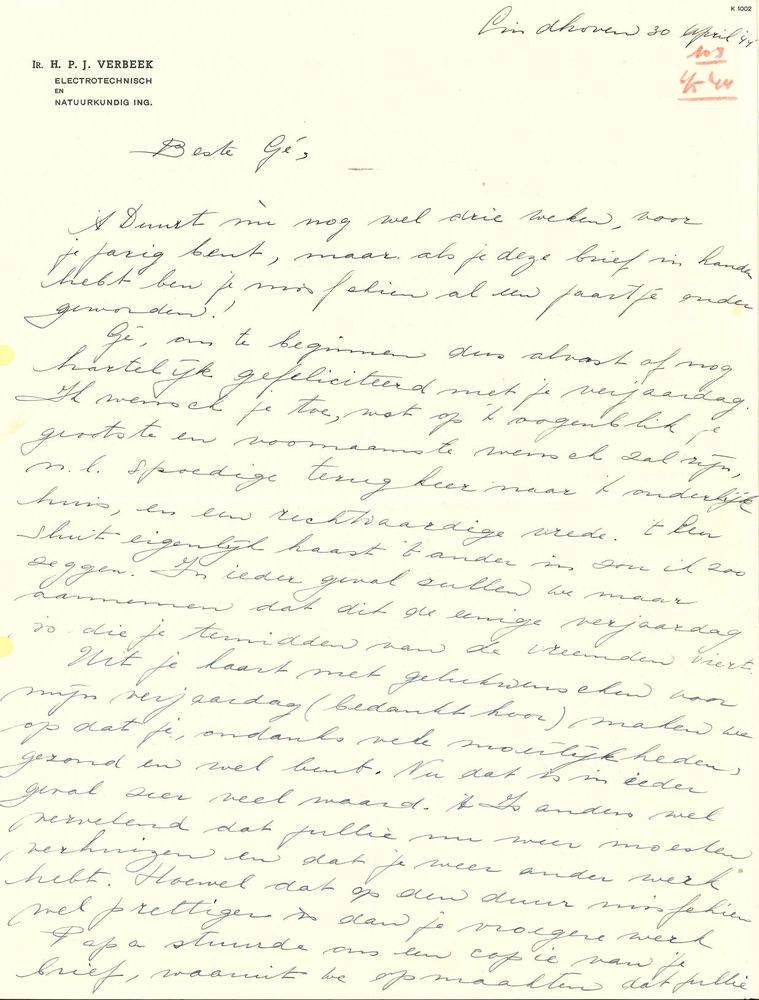 K 1002
Eindhoven 30 April '44
103
4/5 '44
IR. H. P. J. VERBEEK
ELECTROTECHNISCH
EN
NATUURKUNDIG ING.
Beste Gé,
't Duurt nu nog wel drie weken, voor
je jarig bent, maar als je deze brief in handen
hebt ben je misschien al een jaartje ouder
geworden!
Gé, om te beginnen dus alvast of nog
hartelijk gefeliciteerd met je verjaardag.
Ik wensch je toe, wat op 't oogenblik je
grootste en voornaamste wensch zal zijn,
n.l. spoedige terugkeer naar 't ouderlijk
huis, en een rechtvaardige vrede. 't Een
sluit eigenlijk haast 't ander in zou ik zoo
zeggen. In ieder geval zullen we maar
aannemen dat dit de eenige verjaardag
is die je temidden van de vreemden viert.
Uit je kaart met gelukwenschen voor
mijn verjaardag (bedankt hoor) maken we
op dat je, ondanks vele moeilijkheden,
gezond en wel bent. Nu dat is in ieder
geval zeer veel waard. 't Is anders wel
vervelend dat jullie nu weer moesten
verhuizen en dat je weer ander werk
hebt. Hoewel dat op den duur misschien
wel prettiger is dan je vroegere werk
Papa stuurde ons een copie van je
brief, waaruit we opmaakten dat jullie